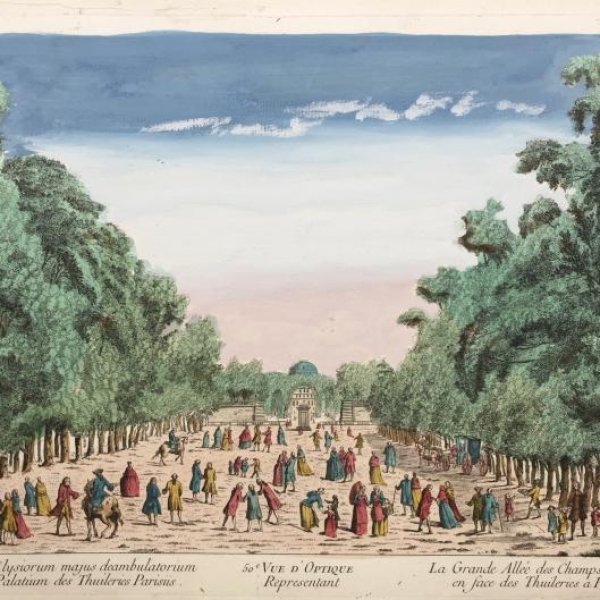 lysiorum majus deambulatorium
Palatium des Thuileries Parisiis.
50e VUE D'OPTIQUE
Representant
La Grande Allée des Champs
en face des Thuileries à P